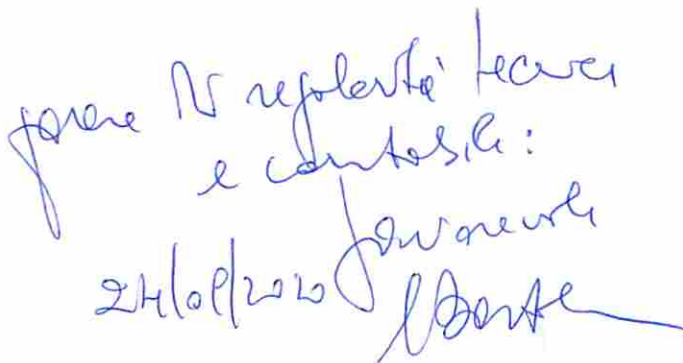 parere di regolarità tecnica
e contabile:
favorevole